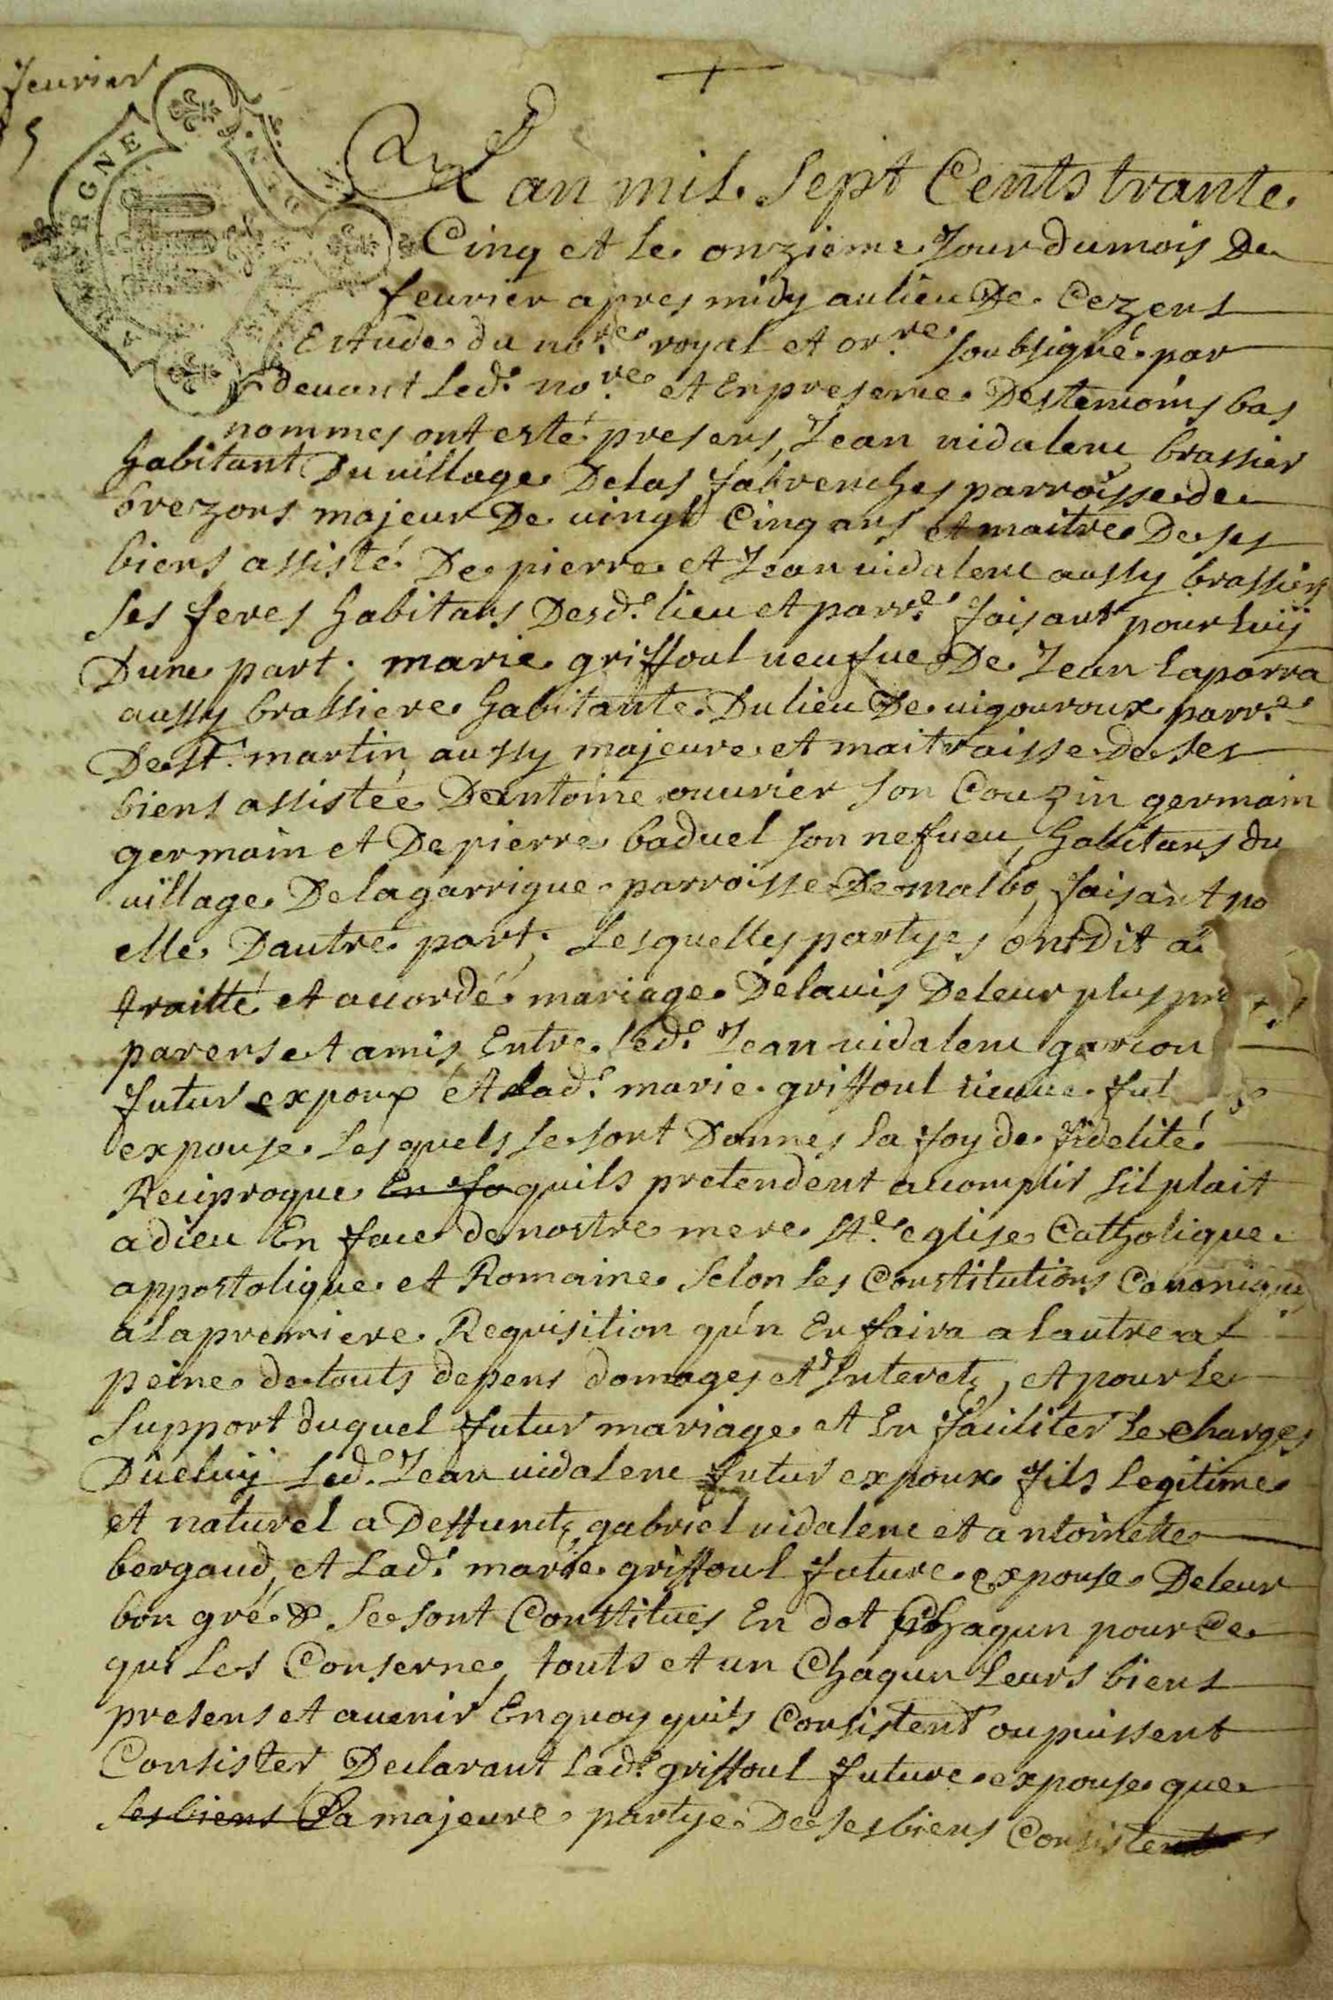 feurier
5
AUVERGNE
L'an mil Sept Cents trante
Cinq et le onzieme Jour du mois De
feurier apres midy au lieu De Cezens
Estude du no.re royal et or.re soubsigné par
deuant led.t no.re et En presence Des temoins bas
nommes ont esté presens, Jean uidalenc brassier
habitant Du uillage Delas fabrenches parroisse de
brezons majeur De uingt Cinq ans et maitre De ses
biens assisté De pierre et Jean uidalenc aussy brassiers
ses feres habitans Desd.t lieu et parr.e faisant pour luy
Dune part, marie griffoul ueufue De Jean laparra
aussy brassiere habitante Du lieu De uigouroux parr.e
De St. martin, aussy majeure et maitraisse de ses
biens assistée Dantoine ouurier son Couzin germain
germain et De pierre baduel son nefueu, habitans du
uillage De lagarrigue parroisse De malbo, faisant po
elle Dautre part, Lesquelles partyes ont Dit a
traitté et accordé mariage De lauis De leur plus pr
parens et amis Entre led.t Jean uidalenc garcon
futur expoux et lad.t marie griffoul ueuue fut
expouse Lesquels se sont Donnes la foy de fidelité
Reciproque En fa quils pretendent accomplir sil plait
a dieu En face de nostre mere St.e eglise Catholique
appostolique et Romaine Selon les Constitutions Canoniques
a la premiere Requisition qu'n En faira a lautre a
peine de touts depens domages et Interets, et pour le
Support duquel futur mariage et En faciliter le charges
Diceluy led.t Jean uidalenc futur expoux fils legitime
et naturel a Deffuncts gabriel uidalenc et antoinette
bergaud, et Lad.t marie griffoul future expouse De leur
bon gré & se sont Constitues En dot Chaqun pour Ce
qui Les Conserne, touts et un Chaqun leurs biens
presens et auenir En quoy quils Consistent ou puissent
Consister, Declarant lad.t griffoul future expouse que
ses biens La majeure partye De ses biens Consistent